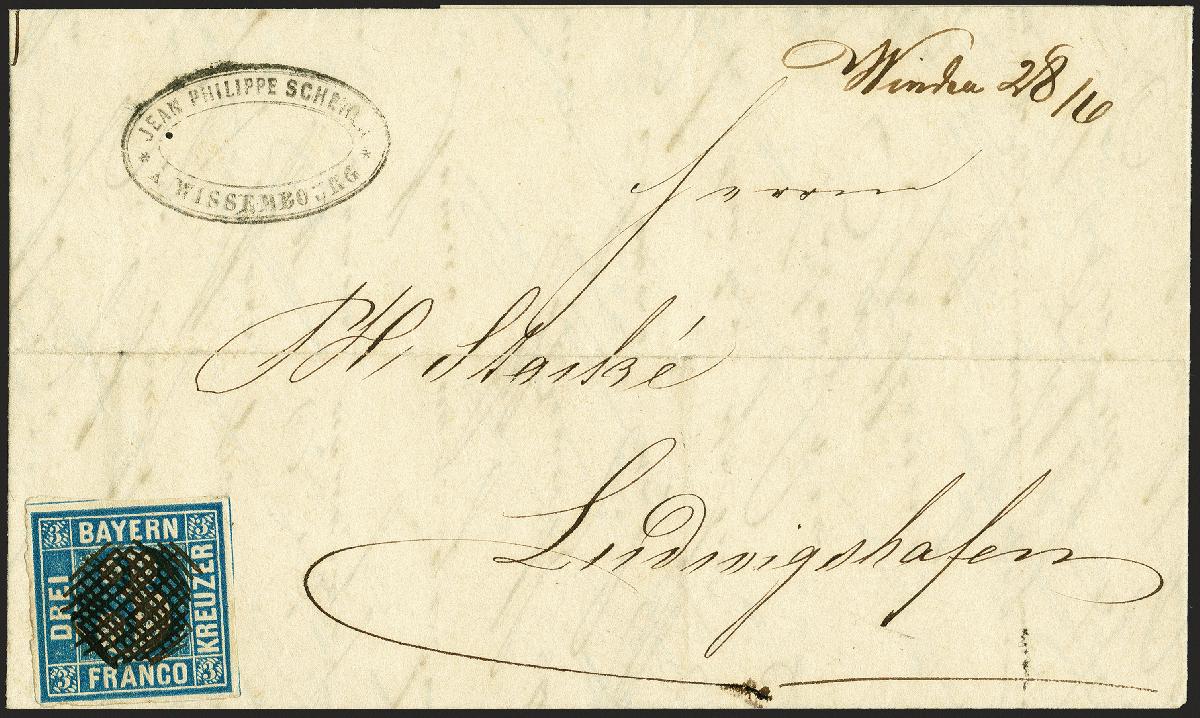 Winden 28/6
JEAN PHILIPPE
* A WISSEMBOURG *
Herrn
Ph. Starké
Ludwigshafen
3 BAYERN 3
DREI
KREUZER
3 FRANCO 3